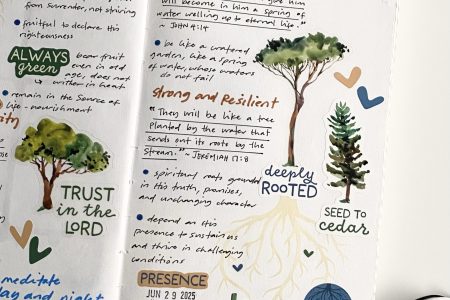 from surrender, not striving
fruitful to declare His
righteousness
ALWAYS
green
bear fruit
even in old
age, does not
wither in heat
remain in the Source of
life - nourishment
TRUST
in the
LORD
meditate
day and night
him
become in him a spring of
water welling up to eternal life."
~ JOHN 4:14
be like a watered
garden, like a spring
of water, whose waters
do not fail
Strong and Resilient
"They will be like a tree
planted by the water that
sends out its roots by the
stream." ~ JEREMIAH 17:8
spiritual roots grounded
in His truth, promises,
and unchanging character
depend on His
presence to sustain us
and thrive in challenging
conditions
PRESENCE
JUN 29 2025
deeply
ROOTED
SEED TO
cedar